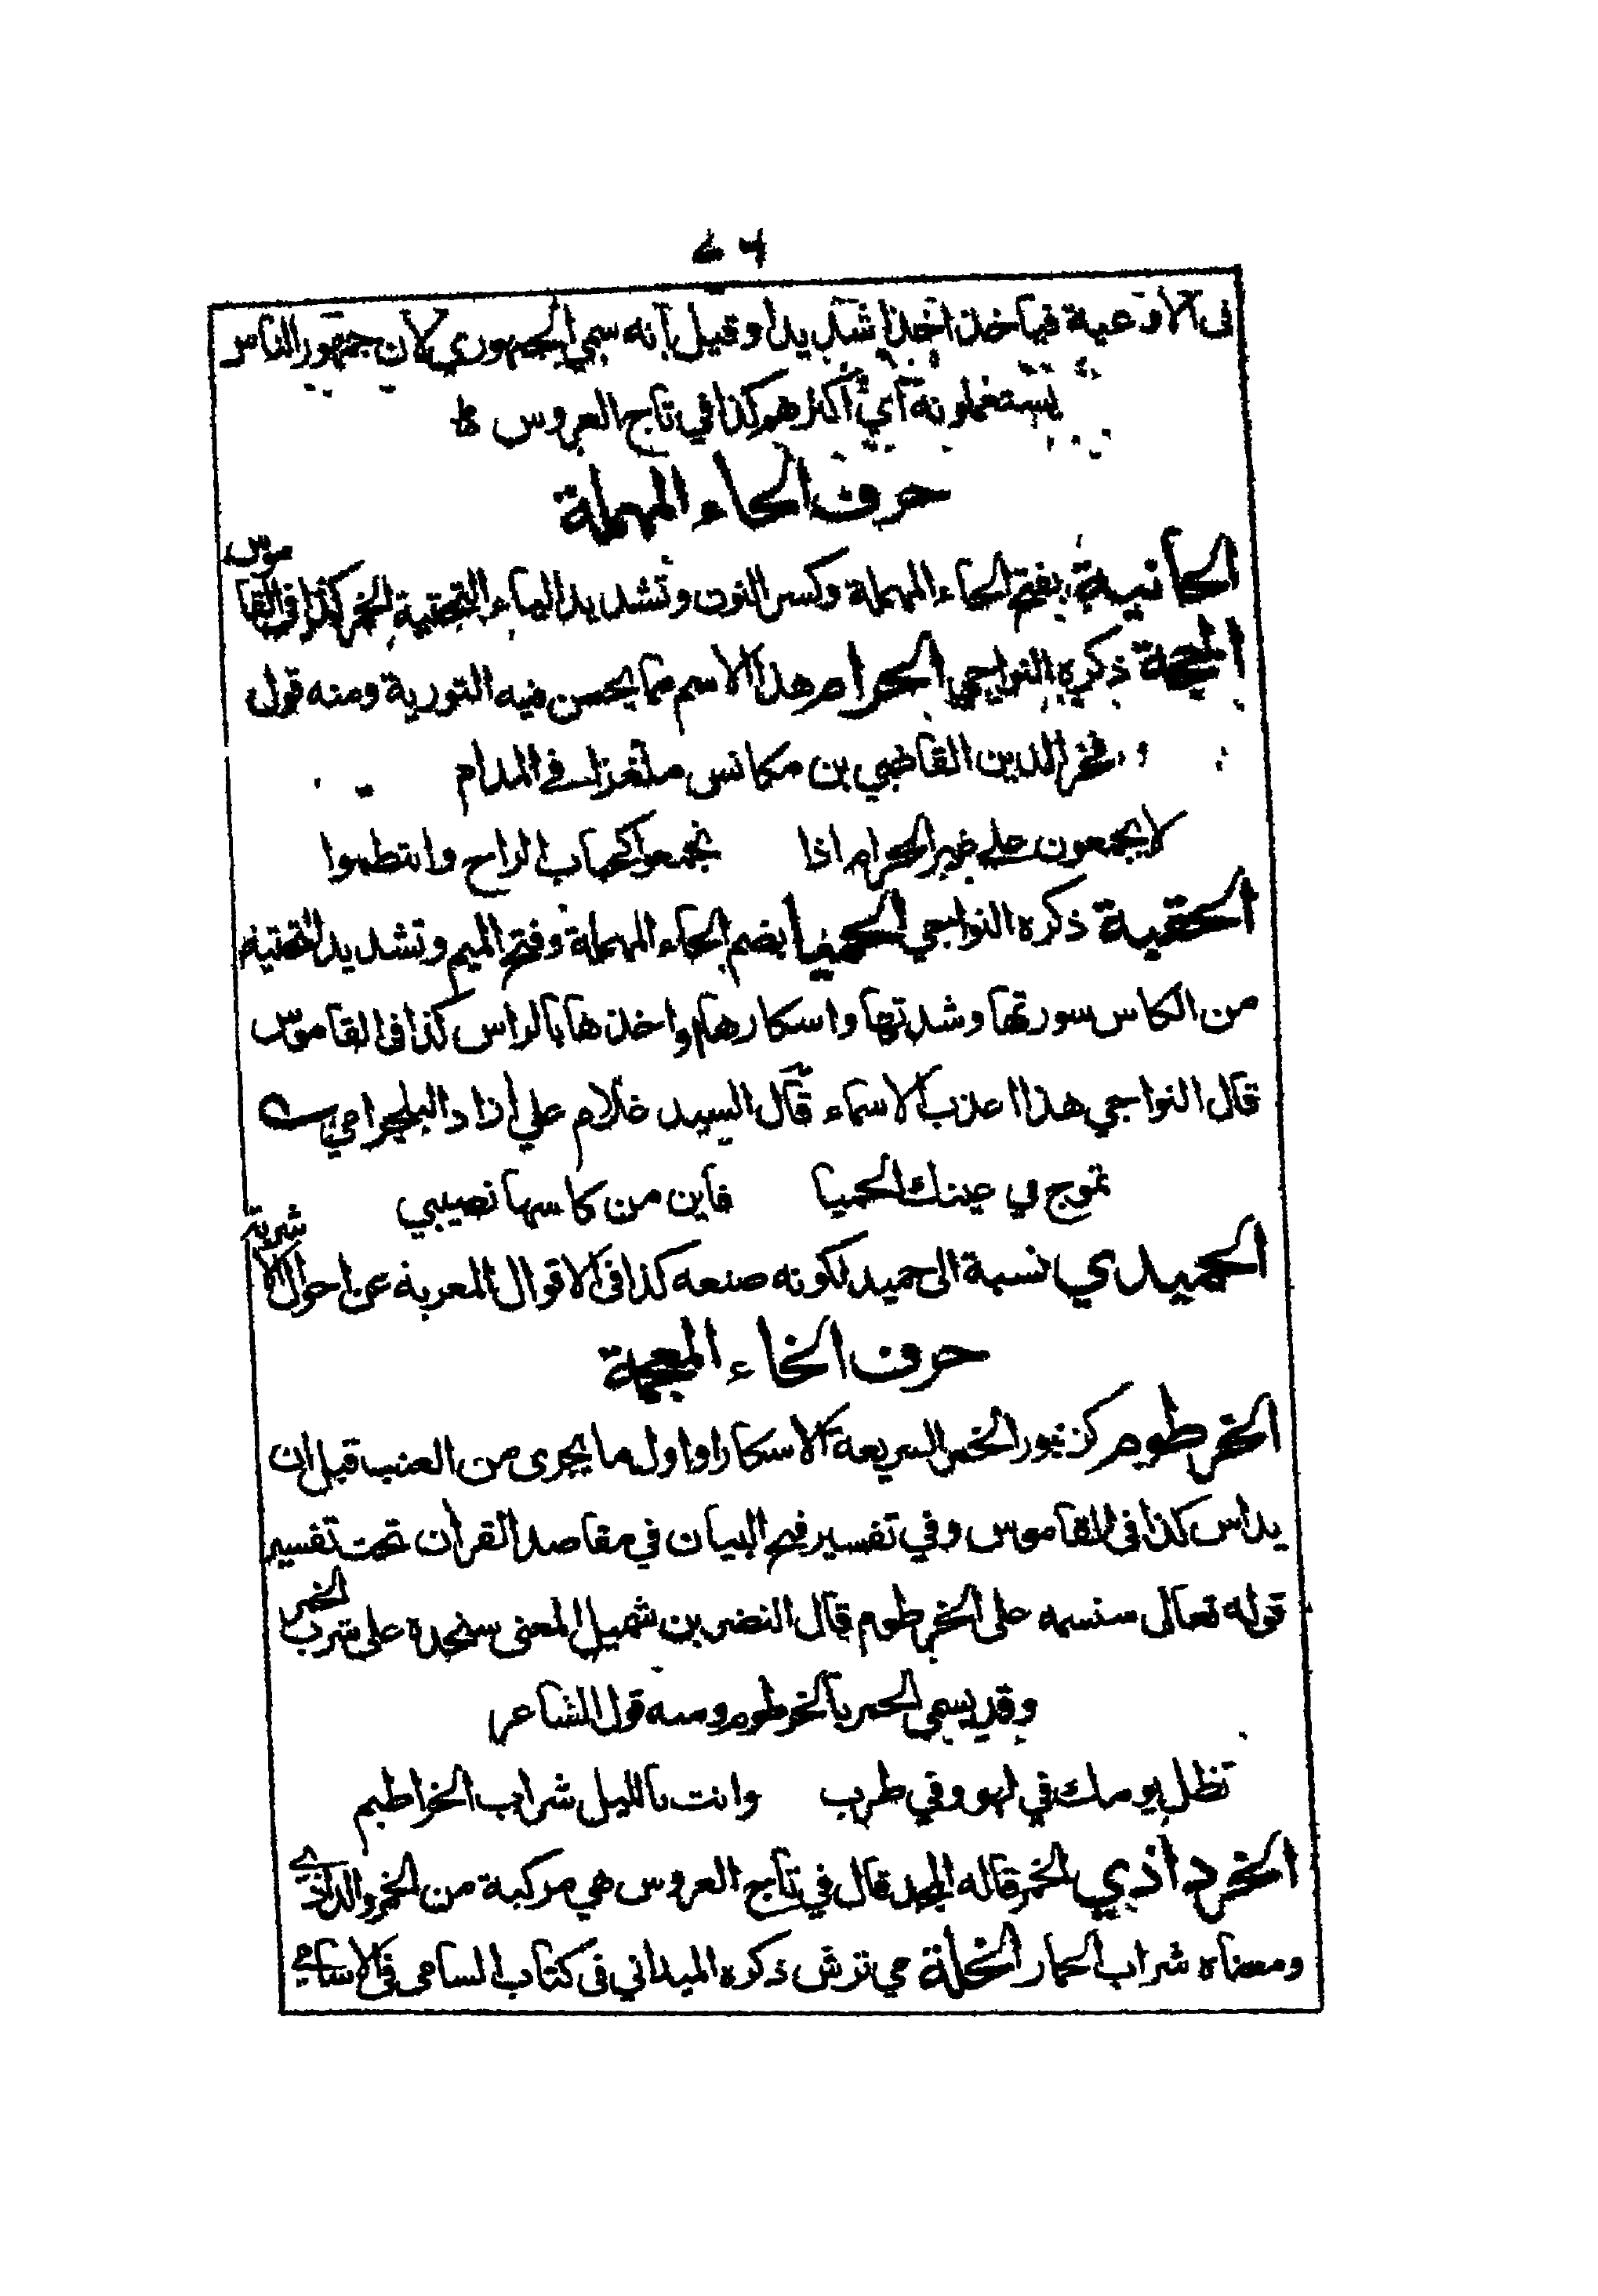 في الاوعية فياخذ اخذا شديدا وقيل بانه سمي الجمهوري لان جمهور الناس
يستعملونه اي اكثرهم كذا في تاج العروس
حرف الحاء المهملة
الحانية بفتح الحاء المهملة وكسر النون وتشديد الياء التحتية الخمر كذا في القاموس
ذكره النواجي الحرام هذا الاسم مما يحسن فيه التورية ومنه قول
فخر الدين القاضي بن مكانس ملغزا في المدام
لا يجمعون على غير الحرام اذا تجمعوا كحباب الراح وانتظموا
الحقية ذكره النواجي الحميا بضم الحاء المهملة وفتح الميم وتشديد التحتية
من الكاس سورتها وشدتها واسكارها واخذها بالراس كذا في القاموس
قال النواجي هذا اعذب الاسماء قال السيد غلام علي ازاد البلجرامي
تموج في عينك الحميا فاين من كاسها نصيبي
الحميدي نسبة الى حميد لكونه صنعه كذا في الاقوال المعربة عن احوال الاشربة
حرف الخاء المعجمة
الخرطوم كزنبور الخمر السريعة الاسكار او اول ما يجرى من العنب قبل ان
يداس كذا في القاموس وفي تفسير فتح البيان في مقاصد القران تحت تفسير
قوله تعالى سنسمه على الخرطوم قال النضر بن شميل المعنى سنحده على شرب الخمر
وقد يسمى الخمر بالخرطوم ومنه قول الشاعر
تظل يومك في لهو وفي طرب وانت بالليل شراب الخراطيم
الخردادي الخمر قاله المجد قال في تاج العروس هي مركبة من الخمر والداذي
ومعناه شراب الحمار الخلة مي ترش ذكره الميداني في كتاب السامي في الاسامي